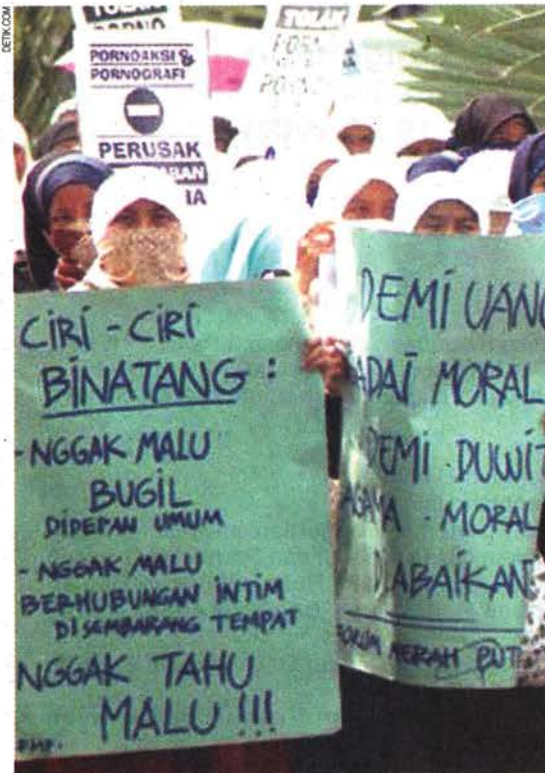 DETIK.COM
PORNO
PORNOAKSI &
PORNOGRAFI
PERUSAK
IA
TOLAK
CIRI - CIRI
BINATANG :
- NGGAK MALU
BUGIL
DIDEPAN UMUM
- NGGAK MALU
BERHUBUNGAN INTIM
DISEMBARANG TEMPAT
NGGAK TAHU
MALU !!!
FMP.
DEMI UANG
ADAI MORAL
DEMI DUWIT
AGAMA - MORAL
DIABAIKAN
FORUM MERAH PUTI